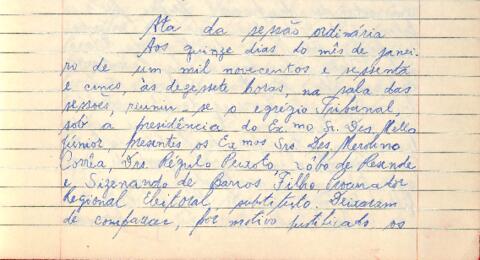 Ata da sessão ordinária
Aos quinze dias do mês de janei-
ro de um mil novecentos e sessenta
e cinco, às dezessete horas, na sala das
sessões, reuniu-se o egrégio Tribunal,
sob a presidência do Ex.mo Sr. Des. Mello
Júnior, presentes os Ex.mos Srs. Des. Merolino
Corrêa, Drs. Régulo Peixoto, Lôbo de Resende
e Sizenando de Barros Filho, Procurador
Regional Eleitoral, substituto. Deixaram
de comparecer, por motivo justificado, os